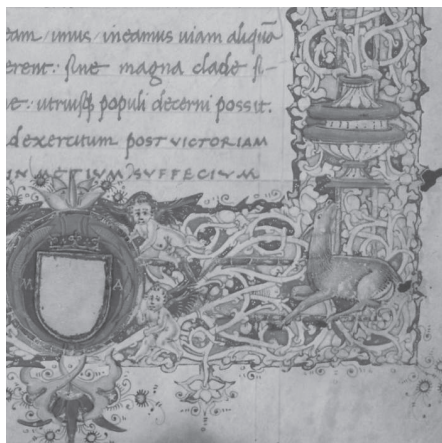 eam / unus / ineamus uiam aliquā
erent: sine magna clade si-
e: utriusq populi decerni possit.
d exercitum POST VICTORIAM
IN METIUM SUFFECIUM
M A